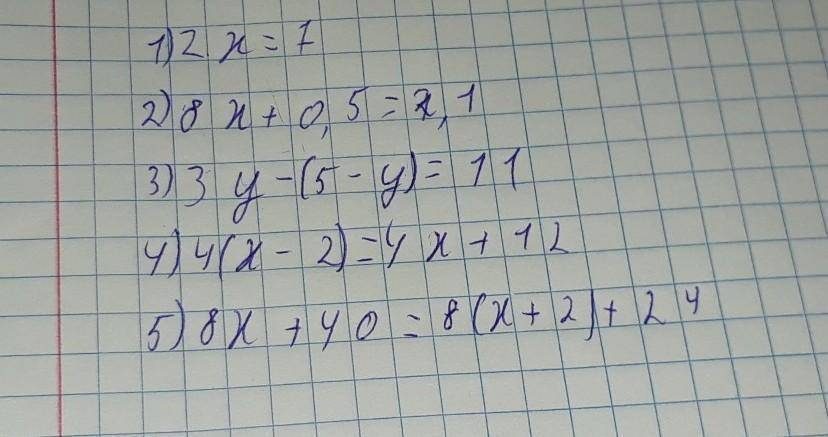 1) 2x = 1
2) 8x + 0,5 = 2,1
3) 3y - (5 - y) = 11
4) 4(x - 2) = 4x + 12
5) 8x + 40 = 8(x + 2) + 24